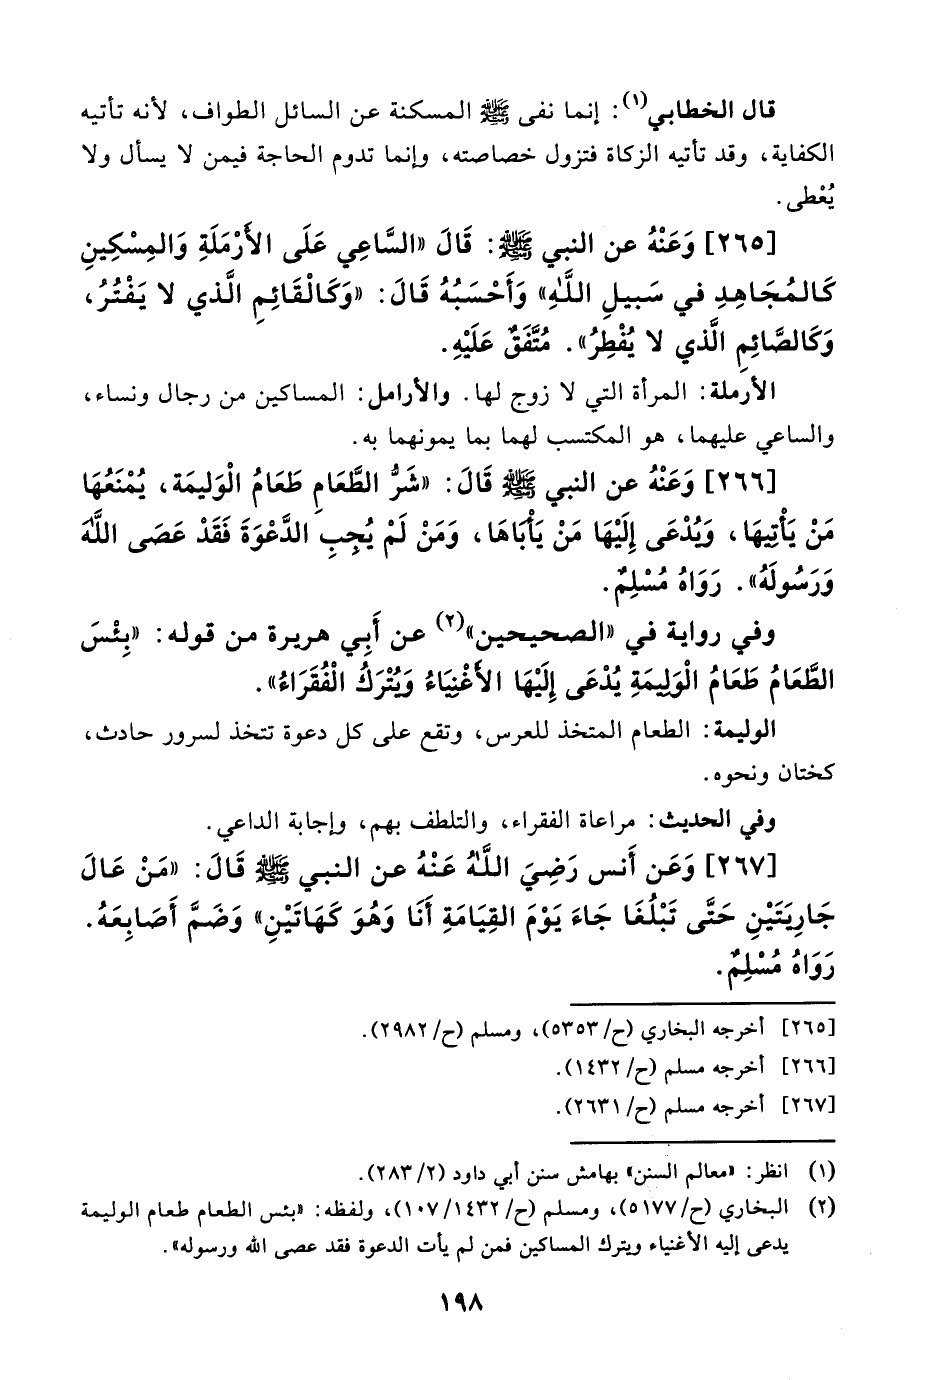 قال الخطابي(١): إنما نفى ﷺ المسكنة عن السائل الطواف، لأنه تأتيه
الكفاية، وقد تأتيه الزكاة فتزول خصاصته، وإنما تدوم الحاجة فيمن لا يسأل ولا
يُعْطى.
[٢٦٥] وَعَنْهُ عن النبي ﷺ: قَالَ «السَّاعِي عَلَى الأَرْمَلَةِ وَالمِسْكِينِ
كَالمُجَاهِدِ في سَبيلِ اللَّهِ» وَأَحْسَبُهُ قَالَ: «وَكَالْقَائِمِ الَّذي لا يَفْتُرُ،
وَكَالصَّائِمِ الَّذي لا يُفْطِرُ». مُتَّفَقٌ عَلَيْهِ.
الأرملة: المرأة التي لا زوج لها. والأرامل: المساكين من رجال ونساء،
والساعي عليهما، هو المكتسب لهما بما يمونهما به.
[٢٦٦] وَعَنْهُ عن النبي ﷺ قَالَ: «شَرُّ الطَّعَامِ طَعَامُ الْوَليمَة، يُمْنَعُهَا
مَنْ يَأْتِيهَا، وَيُدْعَى إِلَيْهَا مَنْ يَأْبَاهَا، وَمَنْ لَمْ يُجِبِ الدَّعْوَةَ فَقَدْ عَصَى اللَّهَ
وَرَسُولَهُ». رَوَاهُ مُسْلِمٌ.
وفي رواية في «الصحيحين»(٢) عن أَبِي هريرة من قوله: «بِئْسَ
الطَّعَامُ طَعَامُ الْوَلِيمَةِ يُدْعَى إِلَيْهَا الأَغْنِيَاءُ وَيُتْرَكُ الْفُقَرَاءُ».
الوليمة: الطعام المتخذ للعرس، وتقع على كل دعوة تتخذ لسرور حادث،
كختان ونحوه.
وفي الحديث: مراعاة الفقراء، والتلطف بهم، وإجابة الداعي.
[٢٦٧] وَعَن أَنس رَضِيَ اللَّهُ عَنْهُ عن النبي ﷺ قَالَ: «مَنْ عَالَ
جَارِيَتَيْنِ حَتَّى تَبْلُغَا جَاءَ يَوْمَ القِيَامَةِ أَنَا وَهُوَ كَهَاتَيْنِ» وَضَمَّ أَصَابِعَهُ.
رَوَاهُ مُسْلِمٌ.
[٢٦٥] أخرجه البخاري (ح/٥٣٥٣)، ومسلم (ح/٢٩٨٢).
[٢٦٦] أخرجه مسلم (ح/١٤٣٢).
[٢٦٧] أخرجه مسلم (ح/٢٦٣١).
(١) انظر: «معالم السنن» بهامش سنن أبي داود (٢/٢٨٣).
(٢) البخاري (ح/٥١٧٧)، ومسلم (ح/١٠٧/١٤٣٢)، ولفظه: «بئس الطعام طعام الوليمة
يدعى إليه الأغنياء ويترك المساكين فمن لم يأت الدعوة فقد عصى الله ورسوله».
١٩٨